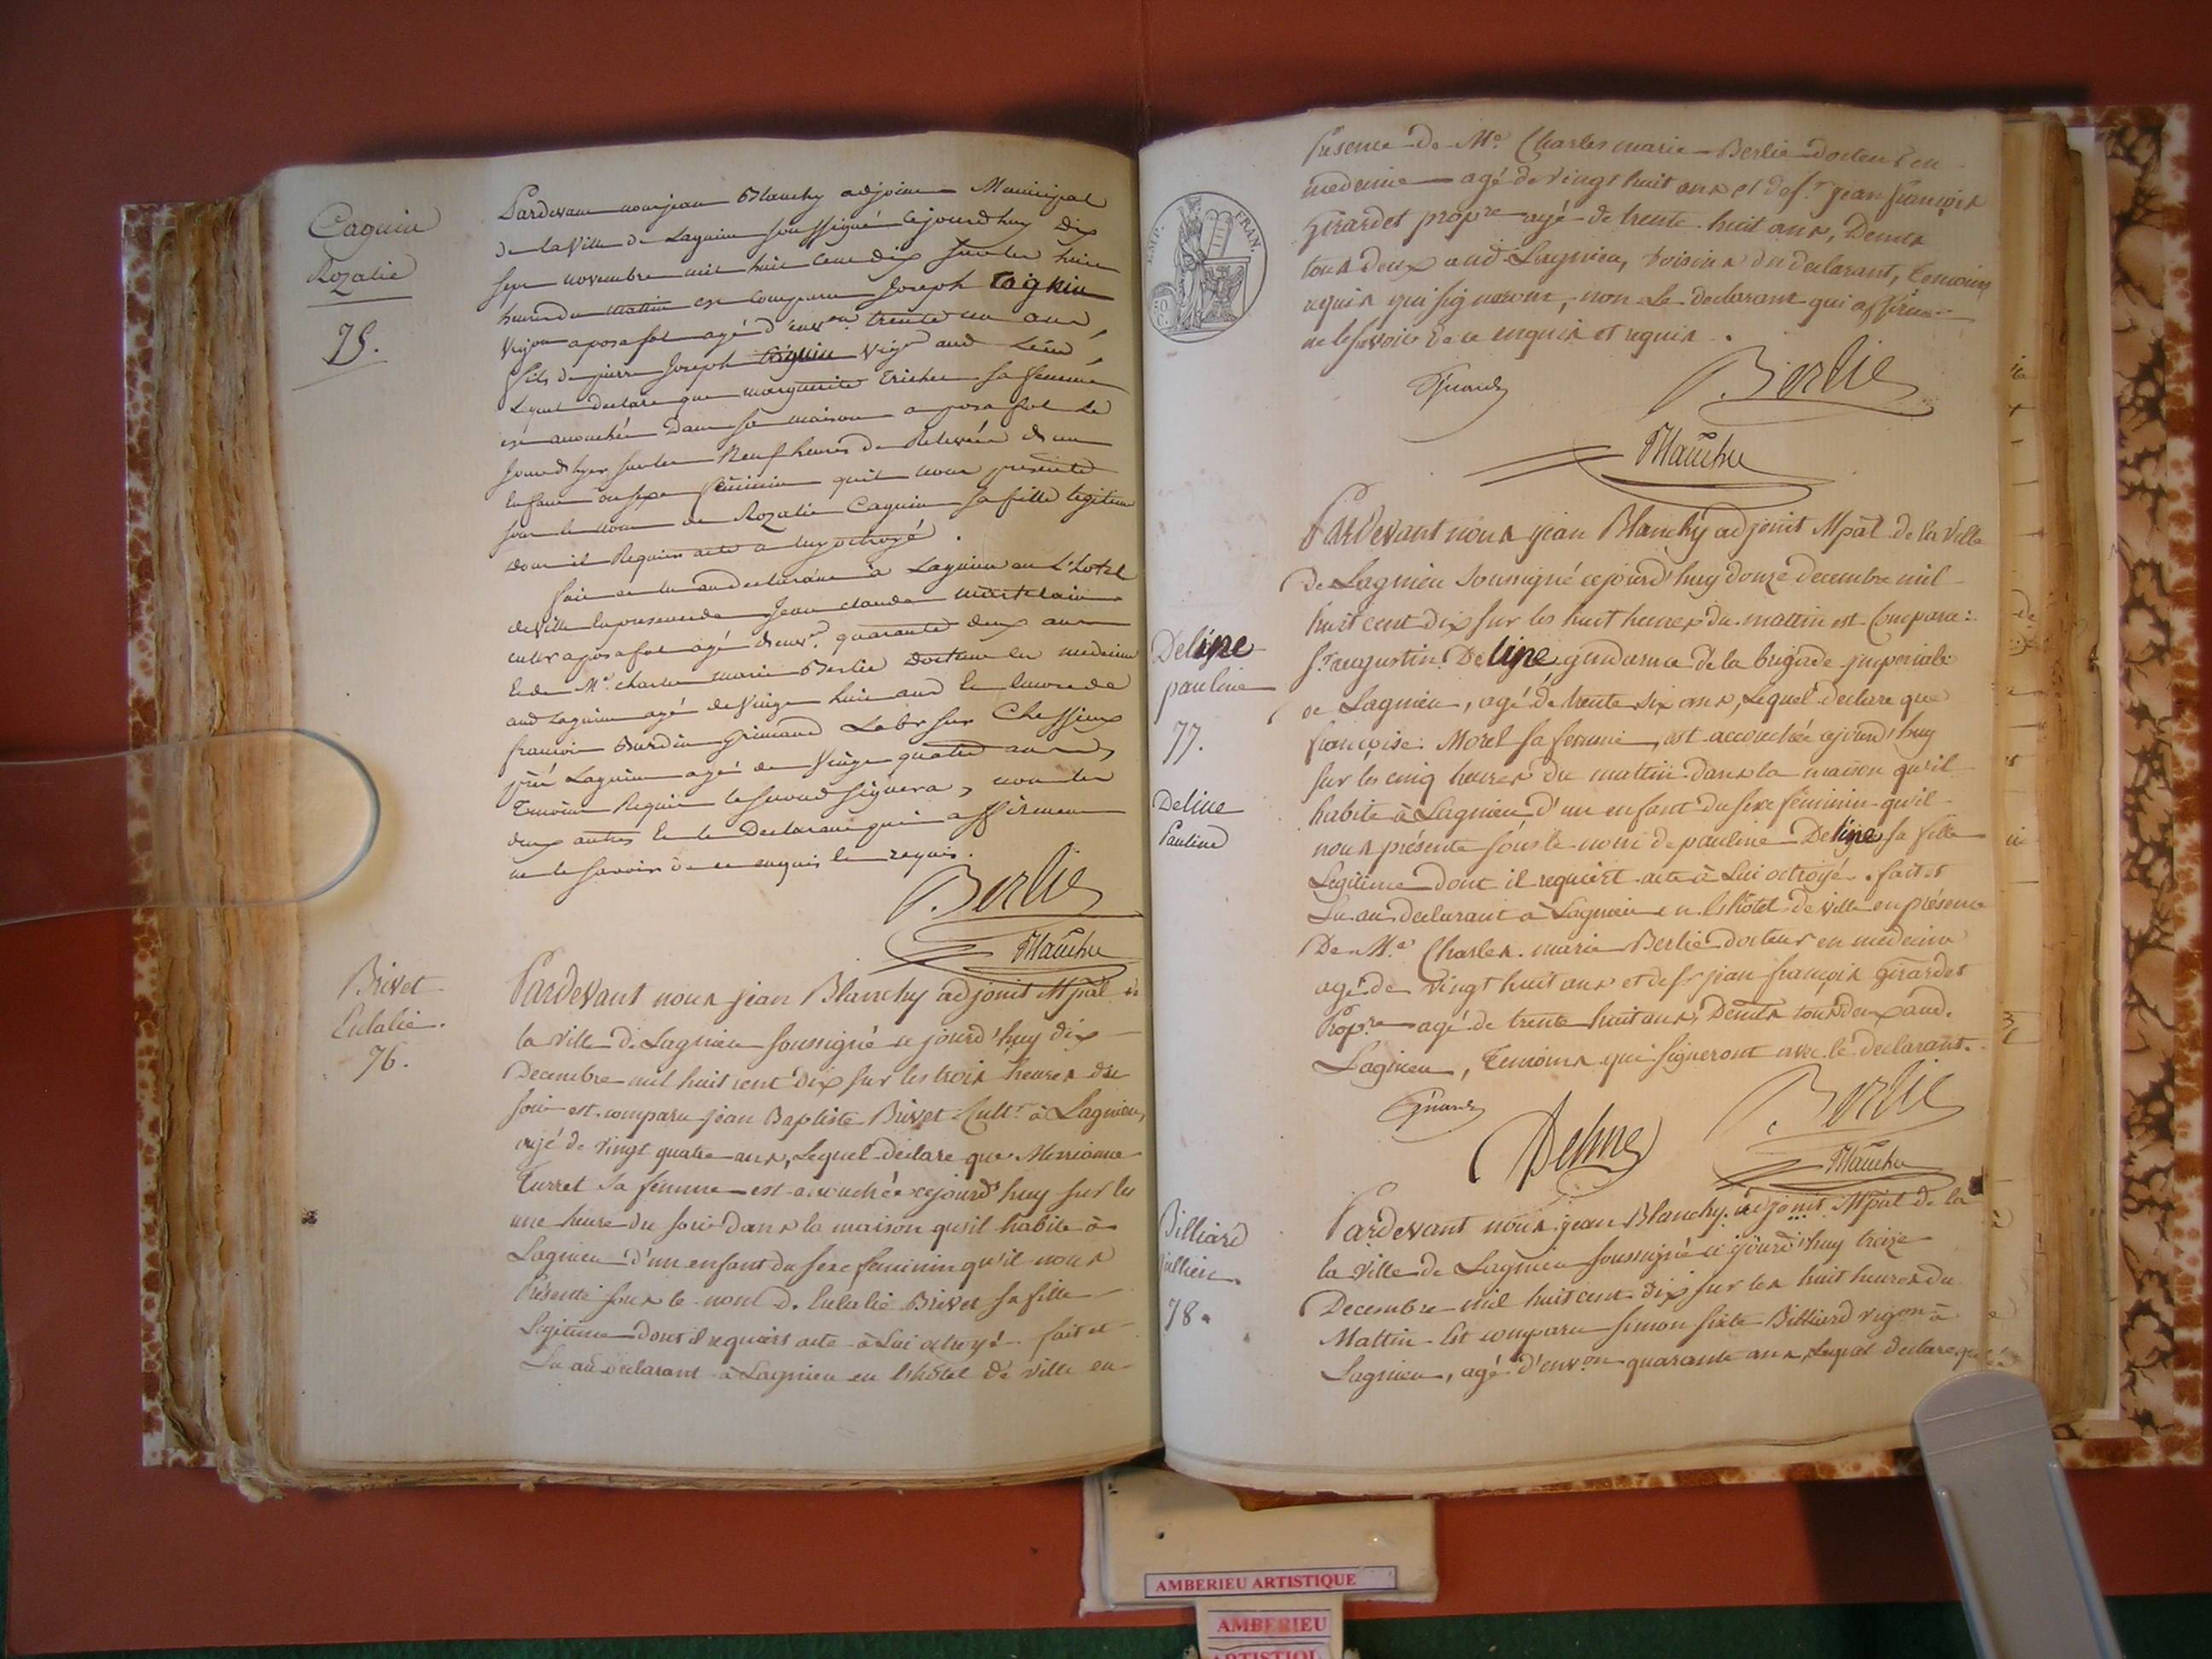 Caguin
Rozalie
75.
Pardevant nous jean Blanchy adjoint Municipal
de la Ville de Lagnieu soussigné cejourdhuy dix
sept novembre mil huit cent dix sur les huit
heures du mattin est comparu Joseph
Vignon a posafol agé d'envon trente un ans,
fils de pierre Joseph
Lequel declare que marguerite Trichet sa femme
est accouchée dans sa maison a posafol le
jour d'hyer sur les Neuf heures de Relevée d'un
enfant du sexe féminin quil nous presente
sous le nom de Rozalie Caguin sa fille legitime
dont il Requier acte a luy octroyé.
fait et lu au declarant à Lagnieu en L'hotel
de Ville en presence de Jean claude
cultr a posafol agé d'envr. quarante deux ans
et de Me. charles marie Berlie Docteur en medecine
aud Lagnieu agé de vingt huit ans et encore de
francois Burdin Grimaud Labr sur Chessieux
près Lagnieu agé de Vingt quatre ans,
Temoins Requis le second signera, non les
deux autres et le Declarant qui affirment
ne le savoir de ce enquis et requis.
Berlie
Blanchy
Brivet
Eulalie.
76.
Pardevant nous jean Blanchy adjoint Mpàl de
la ville de Lagnieu soussigné ce jourd'huy dix
Decembre mil huit cent dix sur les trois heures du
soir est comparu jean Baptiste Brivet Cultr. à Lagnieu,
agé de vingt quatre ans, Lequel declare que Marianne
Turret sa femme est accouchée cejourd'huy sur les
une heure du soir dans la maison qu'il habite à
Lagnieu d'un enfant du sexe feminin qu'il nous
Présente sous le nom d. Eulalie Brivet sa fille
Legitime dont il requiert acte à Lui octroyé. fait et
Lu au declarant à Lagnieu en l'hôtel de ville en
EMP. FRAN.
50 C.
Présence de Me. Charles marie Berlie docteur en
medecine agé de vingt huit ans et de sr. jean françois
Girardet propre agé de trente huit ans, Demts
tous deux aud. Lagnieu, voisins du declarant, Temoins
requis qui signeront, non Le declarant qui affirme
ne le savoir de ce enquis et requis.
Girardet
Berlie
Blanchy
Deline
pauline
77.
Deline
Pauline
Pardevant nous jean Blanchy adjoint Mpàl de la Ville
De Lagnieu soussigné cejourd'huy douze decembre mil
huit cent dix sur les huit heures du mattin est Comparu:
Sr. augustin Deline gendarme de la brigade jmperiale
de Lagnieu, agé de trente six ans, Lequel declare que
françoise Morel sa femme, est accouchée cejourd'huy
sur les cinq heures du mattin dans la maison qu'il
habite à Lagnieu d'un enfant du sexe féminin qu'il
nous présente sous le nom de pauline Deline sa fille
Legitime dont il requiert acte à Lui octroyé. fait et
Lu au declarant à Lagnieu en L'hôtel de ville en présence
De Me. Charles marie Berlie docteur en medecine
agé de vingt huit ans et de sr jean françois Girardet
Propre agé de trente huit ans, Demts tous deux aud.
Lagnieu, Temoins qui signeront avec le declarant.
Girardet
Deline
Berlie
Blanchy
Billiard
jullien.
78.
Pardevant nous jean Blanchy adjoint Mpàl de la
la Ville de Lagnieu soussigné ce jourd'huy treize
Decembre mil huit cent dix sur les huit heures du
Mattin Est comparu simon sixte Billiard vigon à
Lagnieu, agé d'envon quarante ans, Lequel declare que
AMBERIEU ARTISTIQUE
AMBERIEU
ARTISTIQ